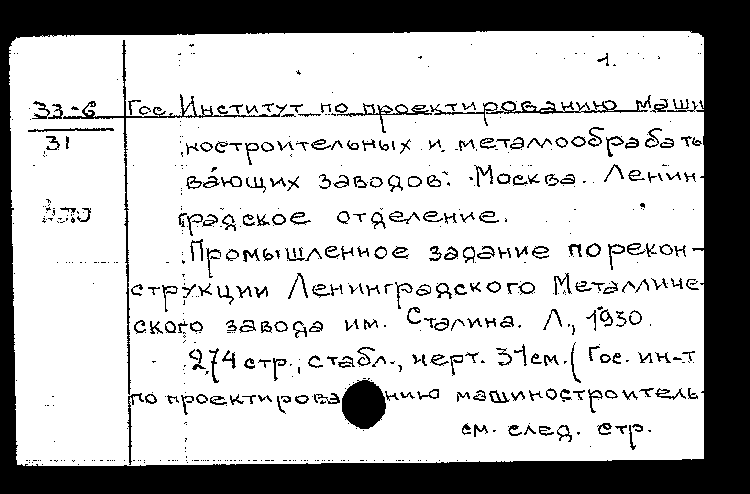 1.
33-6 Гос. Институт по проектированию маши
31 ностроительных и металлообрабаты
вающих заводов. Москва. Ленин-
градское отделение.
Промышленное задание по рекон-
струкции Ленинградского Металличе-
ского завода им. Сталина. Л., 1930.
274 стр., с табл., черт. 31 см. (Гос. ин-т
по проектирова нию машиностроитель-
см. след. стр.